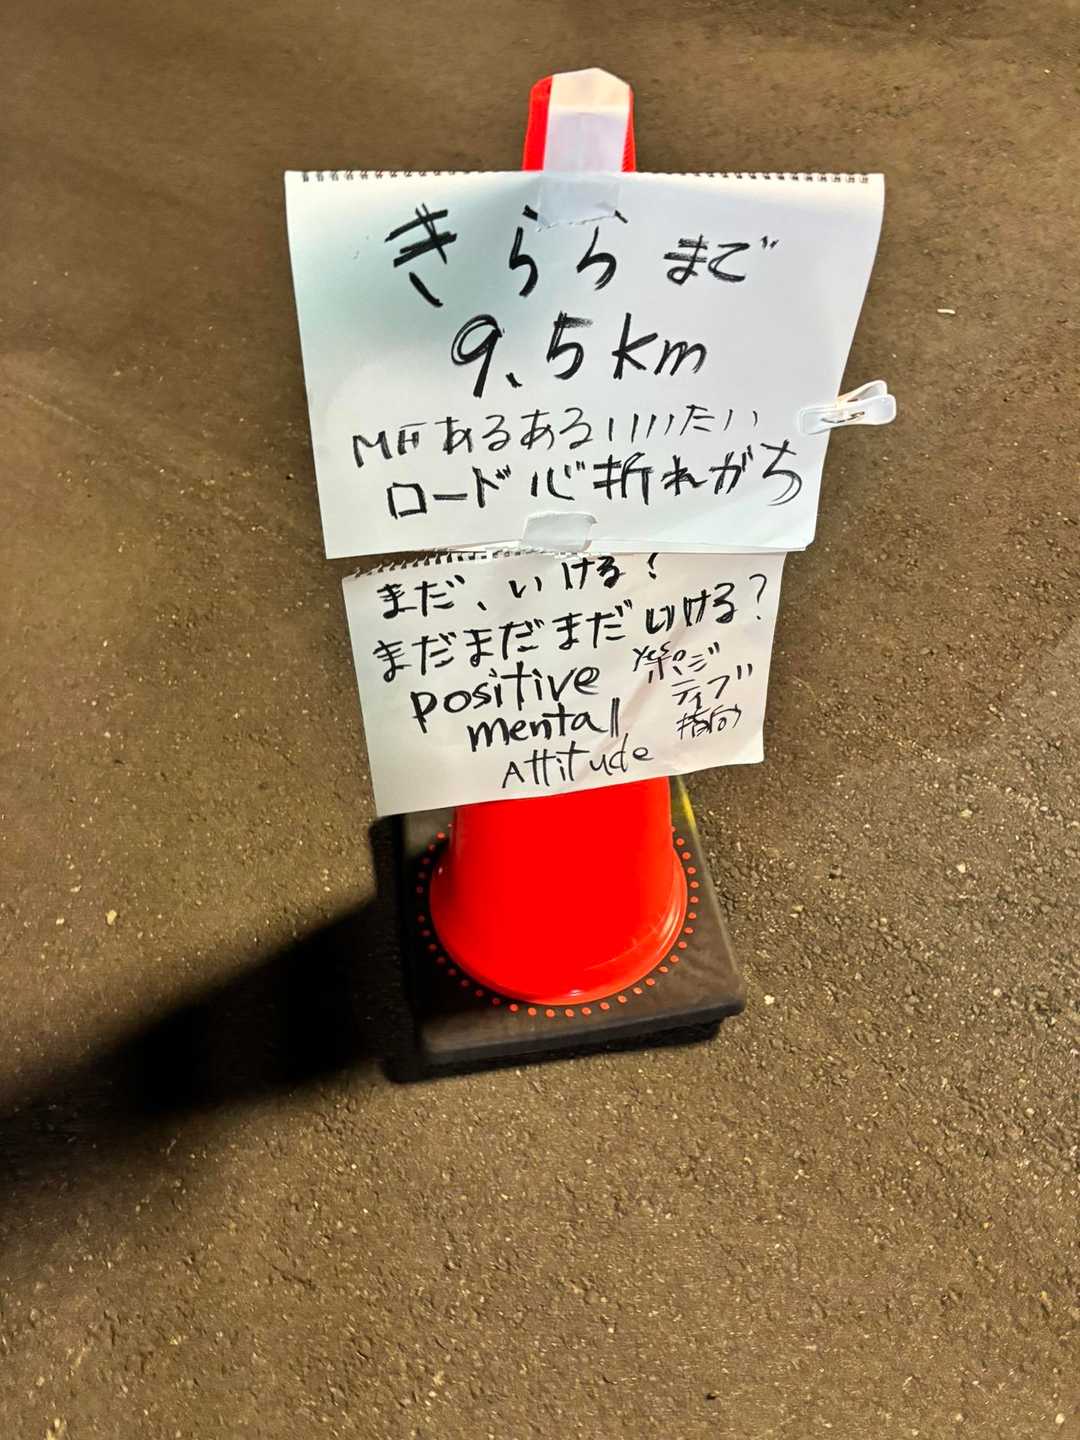 きららまで
9.5km
MFあるあるいいいたい
ロード心折れがち
まだ、いける!
まだまだまだいける?
Positive
mental
Attitude
Yes。
ポジ
ティブ
指向